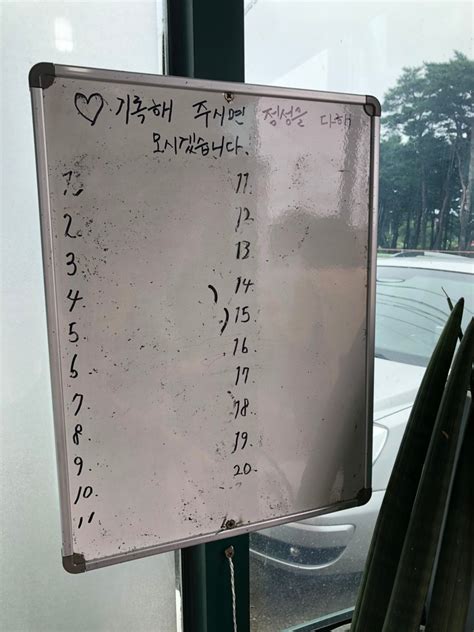 ♡ 기록해 주시면 정성을 다해
모시겠습니다.
1.
2.
3
4.
5.
6
7.
8.
9.
10.
11
11.
12.
13.
14.
15.
16.
17.
18.
19.
20.